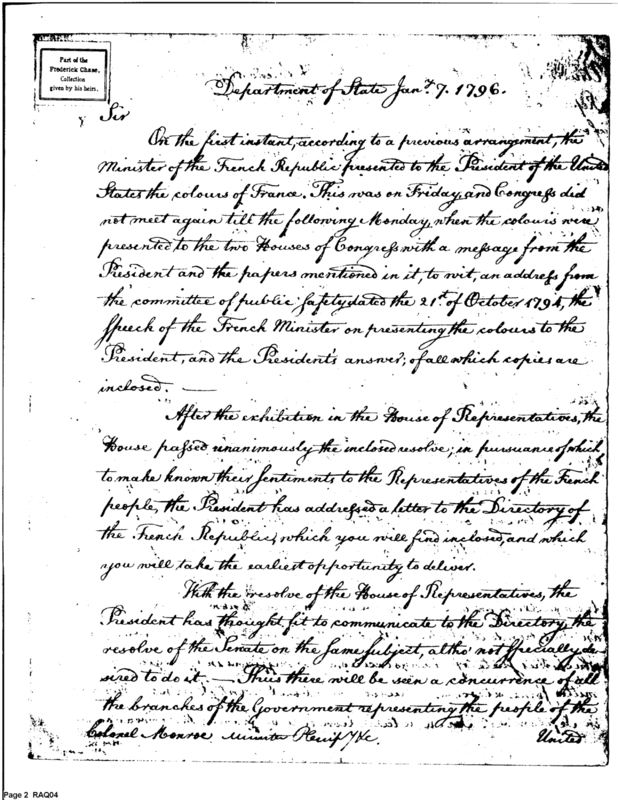 Part of the
Frederick Chase
Collection
given by his heirs.
Department of State Jany. 7. 1796.
Sir
On the first instant, according to a previous arrangement, the
Minister of the French Republic presented to the President of the United
States the colours of France. This was on Friday, and Congress did
not meet again till the following Monday, when the colours were
presented to the two Houses of Congress with a message from the
President and the papers mentioned in it, to wit, an address from
the committee of public safety dated the 21st. of October 1794, the
speech of the French Minister on presenting the colours to the
President, and the President's answer; of all which copies are
inclosed. —
After the exhibition in the House of Representatives, the
House passed unanimously the inclosed resolve; in pursuance of which
to make known their sentiments to the Representatives of the French
people, the President has addressed a letter to the Directory of
the French Republic, which you will find inclosed, and which
you will take the earliest opportunity to deliver.
With the resolve of the House of Representatives, the
President has thought fit to communicate to the Directory, the
resolve of the Senate on the same subject, altho' not specially de
sired to do it. — Thus there will be seen a concurrence of all
the branches of the Government representing the people of the
Colonel Monroe Minister Plenip'y &c. United
Page 2 RAQ04